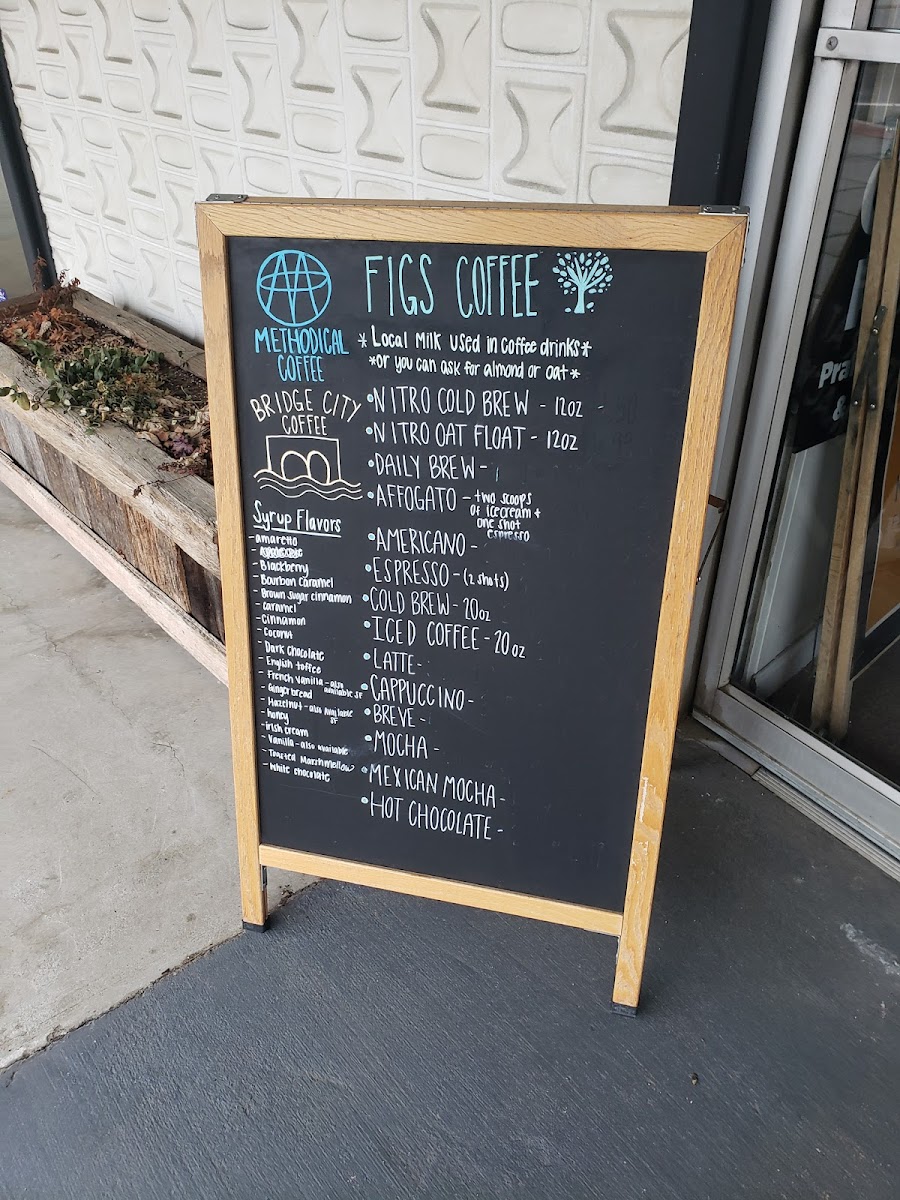 METHODICAL
COFFEE
BRIDGE CITY
COFFEE
Syrup Flavors
- amaretto
- Blackberry
- Bourbon Caramel
- Brown sugar cinnamon
- caramel
- cinnamon
- coconut
- Dark chocolate
- English toffee
- French vanilla - also
available SF
- Gingerbread
- Hazelnut - also available
SF
- honey
- irish cream
- Vanilla - also available
- Toasted Marshmellow
- white chocolate
FIGS COFFEE
* Local Milk used in coffee drinks *
* or you can ask for almond or oat *
• NITRO COLD BREW - 12oz
• NITRO OAT FLOAT - 12oz
• DAILY BREW -
• AFFOGATO - two scoops
of icecream +
one shot
espresso
• AMERICANO -
• ESPRESSO - (2 shots)
• COLD BREW - 20oz
• ICED COFFEE - 20oz
• LATTE -
• CAPPUCCINO -
• BREVE -
• MOCHA -
• MEXICAN MOCHA -
• HOT CHOCOLATE -
&